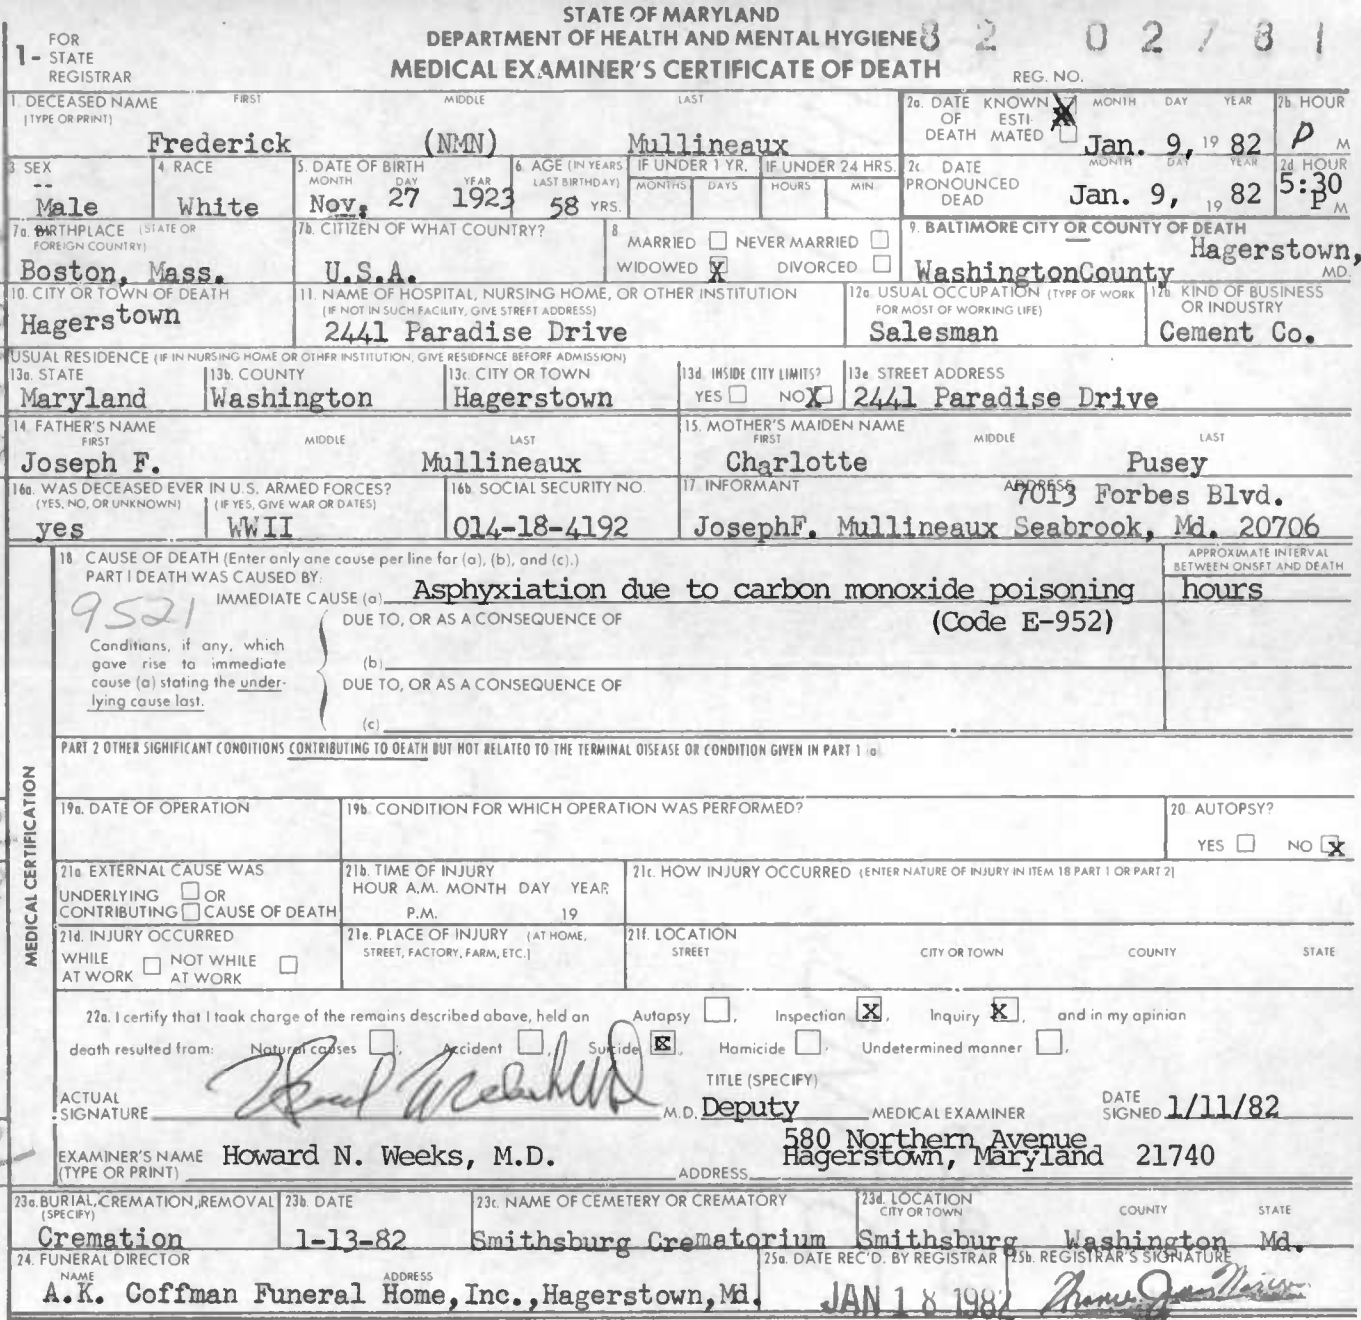 STATE OF MARYLAND
DEPARTMENT OF HEALTH AND MENTAL HYGIENE 82 02781
MEDICAL EXAMINER'S CERTIFICATE OF DEATH REG. NO.
1- FOR STATE REGISTRAR
1. DECEASED NAME (TYPE OR PRINT) FIRST MIDDLE LAST
Frederick (NMN) Mullineaux
2a. DATE OF DEATH KNOWN X ESTIMATED MONTH DAY YEAR
Jan. 9, 19 82
2b. HOUR P M
3 SEX
--
Male
4 RACE
White
5. DATE OF BIRTH MONTH DAY YEAR
Nov. 27 1923
6. AGE (IN YEARS LAST BIRTHDAY)
58 YRS.
IF UNDER 1 YR. MONTHS DAYS
IF UNDER 24 HRS. HOURS MIN.
2c. DATE PRONOUNCED DEAD MONTH DAY YEAR
Jan. 9, 19 82
2d. HOUR
5:30 P M
7a. BIRTHPLACE (STATE OR FOREIGN COUNTRY)
Boston, Mass.
7b. CITIZEN OF WHAT COUNTRY?
U.S.A.
8 MARRIED NEVER MARRIED
WIDOWED X DIVORCED
9. BALTIMORE CITY OR COUNTY OF DEATH
Hagerstown,
WashingtonCounty MD.
10. CITY OR TOWN OF DEATH
Hagerstown
11. NAME OF HOSPITAL, NURSING HOME, OR OTHER INSTITUTION
(IF NOT IN SUCH FACILITY, GIVE STREET ADDRESS)
2441 Paradise Drive
12a. USUAL OCCUPATION (TYPE OF WORK FOR MOST OF WORKING LIFE)
Salesman
12b. KIND OF BUSINESS OR INDUSTRY
Cement Co.
USUAL RESIDENCE (IF IN NURSING HOME OR OTHER INSTITUTION, GIVE RESIDENCE BEFORE ADMISSION)
13a. STATE
Maryland
13b. COUNTY
Washington
13c. CITY OR TOWN
Hagerstown
13d. INSIDE CITY LIMITS?
YES NO X
13e. STREET ADDRESS
2441 Paradise Drive
14. FATHER'S NAME FIRST MIDDLE LAST
Joseph F. Mullineaux
15. MOTHER'S MAIDEN NAME FIRST MIDDLE LAST
Charlotte Pusey
16a. WAS DECEASED EVER IN U.S. ARMED FORCES?
(YES, NO, OR UNKNOWN) (IF YES, GIVE WAR OR DATES)
yes WWII
16b. SOCIAL SECURITY NO.
014-18-4192
17. INFORMANT ADDRESS
7013 Forbes Blvd.
JosephF. Mullineaux Seabrook, Md. 20706
MEDICAL CERTIFICATION
18. CAUSE OF DEATH (Enter only one cause per line for (a), (b), and (c).)
PART I DEATH WAS CAUSED BY:
APPROXIMATE INTERVAL BETWEEN ONSET AND DEATH
IMMEDIATE CAUSE (a) Asphyxiation due to carbon monoxide poisoning hours
9521
DUE TO, OR AS A CONSEQUENCE OF (Code E-952)
Conditions, if any, which gave rise to immediate cause (a) stating the underlying cause last.
(b)
DUE TO, OR AS A CONSEQUENCE OF
(c)
PART 2 OTHER SIGNIFICANT CONDITIONS CONTRIBUTING TO DEATH BUT NOT RELATED TO THE TERMINAL DISEASE OR CONDITION GIVEN IN PART 1 (a)
19a. DATE OF OPERATION
19b. CONDITION FOR WHICH OPERATION WAS PERFORMED?
20. AUTOPSY?
YES NO X
21a. EXTERNAL CAUSE WAS
UNDERLYING OR
CONTRIBUTING CAUSE OF DEATH
21b. TIME OF INJURY
HOUR A.M. MONTH DAY YEAR
P.M. 19
21c. HOW INJURY OCCURRED (ENTER NATURE OF INJURY IN ITEM 18 PART 1 OR PART 2)
21d. INJURY OCCURRED
WHILE AT WORK NOT WHILE AT WORK
21e. PLACE OF INJURY (AT HOME, STREET, FACTORY, FARM, ETC.)
21f. LOCATION
STREET CITY OR TOWN COUNTY STATE
22a. I certify that I took charge of the remains described above, held an Autopsy , Inspection X , Inquiry X , and in my opinion
death resulted from: Natural causes , Accident , Suicide X , Homicide , Undetermined manner .
ACTUAL SIGNATURE M.D. TITLE (SPECIFY) Deputy MEDICAL EXAMINER DATE SIGNED 1/11/82
EXAMINER'S NAME (TYPE OR PRINT) Howard N. Weeks, M.D.
ADDRESS 580 Northern Avenue
Hagerstown, Maryland 21740
23a. BURIAL, CREMATION, REMOVAL (SPECIFY)
Cremation
23b. DATE
1-13-82
23c. NAME OF CEMETERY OR CREMATORY
Smithsburg Crematorium
23d. LOCATION CITY OR TOWN COUNTY STATE
Smithsburg Washington Md.
24. FUNERAL DIRECTOR
NAME ADDRESS
A.K. Coffman Funeral Home,Inc.,Hagerstown,Md.
25a. DATE REC'D. BY REGISTRAR
JAN 18 1982
25b. REGISTRAR'S SIGNATURE